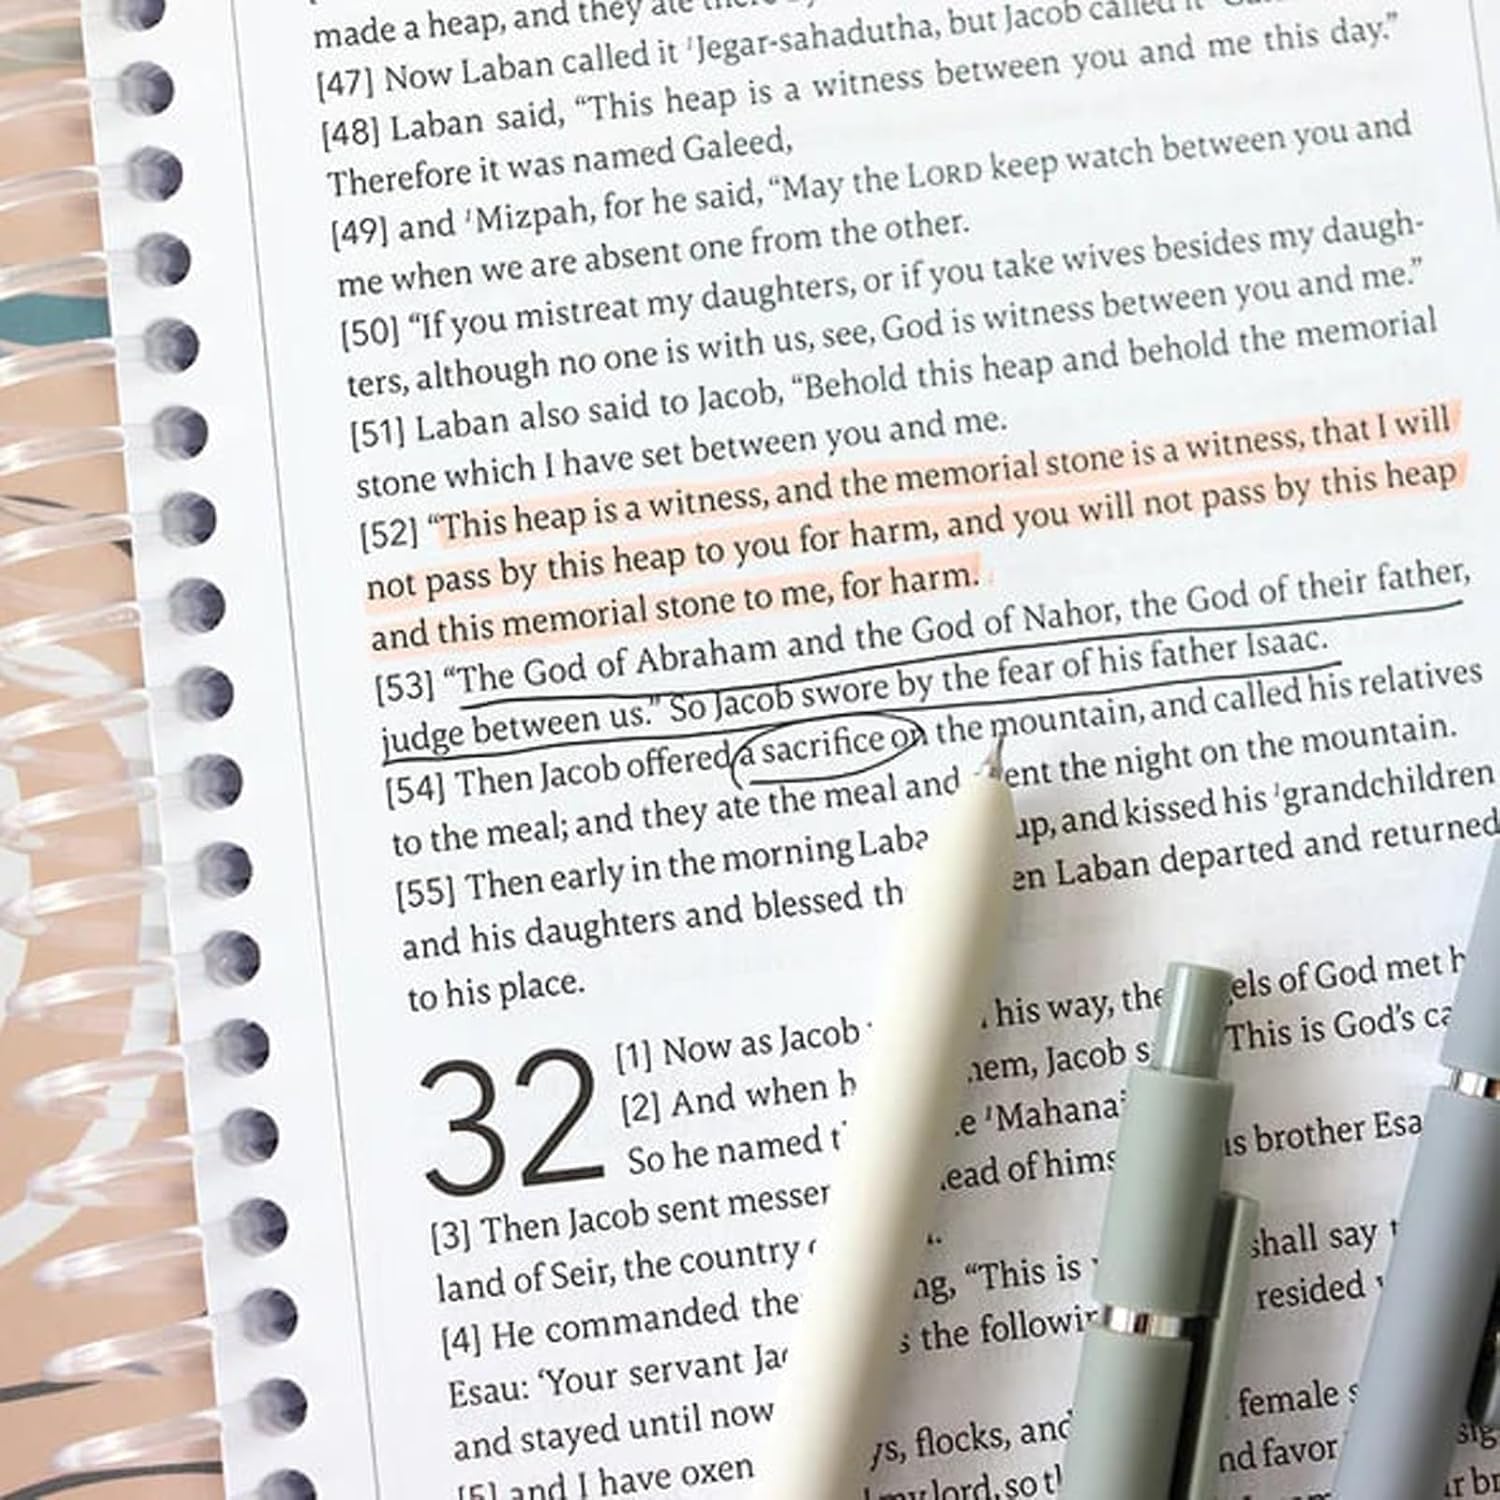 made a heap, and they ate
[47] Now Laban called it ᶦJegar-sahadutha, but Jacob called it
[48] Laban said, “This heap is a witness between you and me this day.”
Therefore it was named Galeed,
[49] and ᶦMizpah, for he said, “May the LORD keep watch between you and
me when we are absent one from the other.
[50] “If you mistreat my daughters, or if you take wives besides my daugh-
ters, although no one is with us, see, God is witness between you and me.”
[51] Laban also said to Jacob, “Behold this heap and behold the memorial
stone which I have set between you and me.
[52] “This heap is a witness, and the memorial stone is a witness, that I will
not pass by this heap to you for harm, and you will not pass by this heap
and this memorial stone to me, for harm.
[53] “The God of Abraham and the God of Nahor, the God of their father,
judge between us.” So Jacob swore by the fear of his father Isaac.
[54] Then Jacob offered a sacrifice on the mountain, and called his relatives
to the meal; and they ate the meal and ent the night on the mountain.
[55] Then early in the morning Laba up, and kissed his ᶦgrandchildren
and his daughters and blessed th en Laban departed and returned
to his place.
32
[1] Now as Jacob his way, the els of God met h
[2] And when h em, Jacob s This is God’s ca
So he named t e ᶦMahana
[3] Then Jacob sent messer ead of hims is brother Esa
land of Seir, the country
[4] He commanded the ng, “This is shall say t
Esau: ‘Your servant Jac s the followin resided
and stayed until now
[5] and I have oxen ys, flocks, and female s
my lord, so t nd favor sig